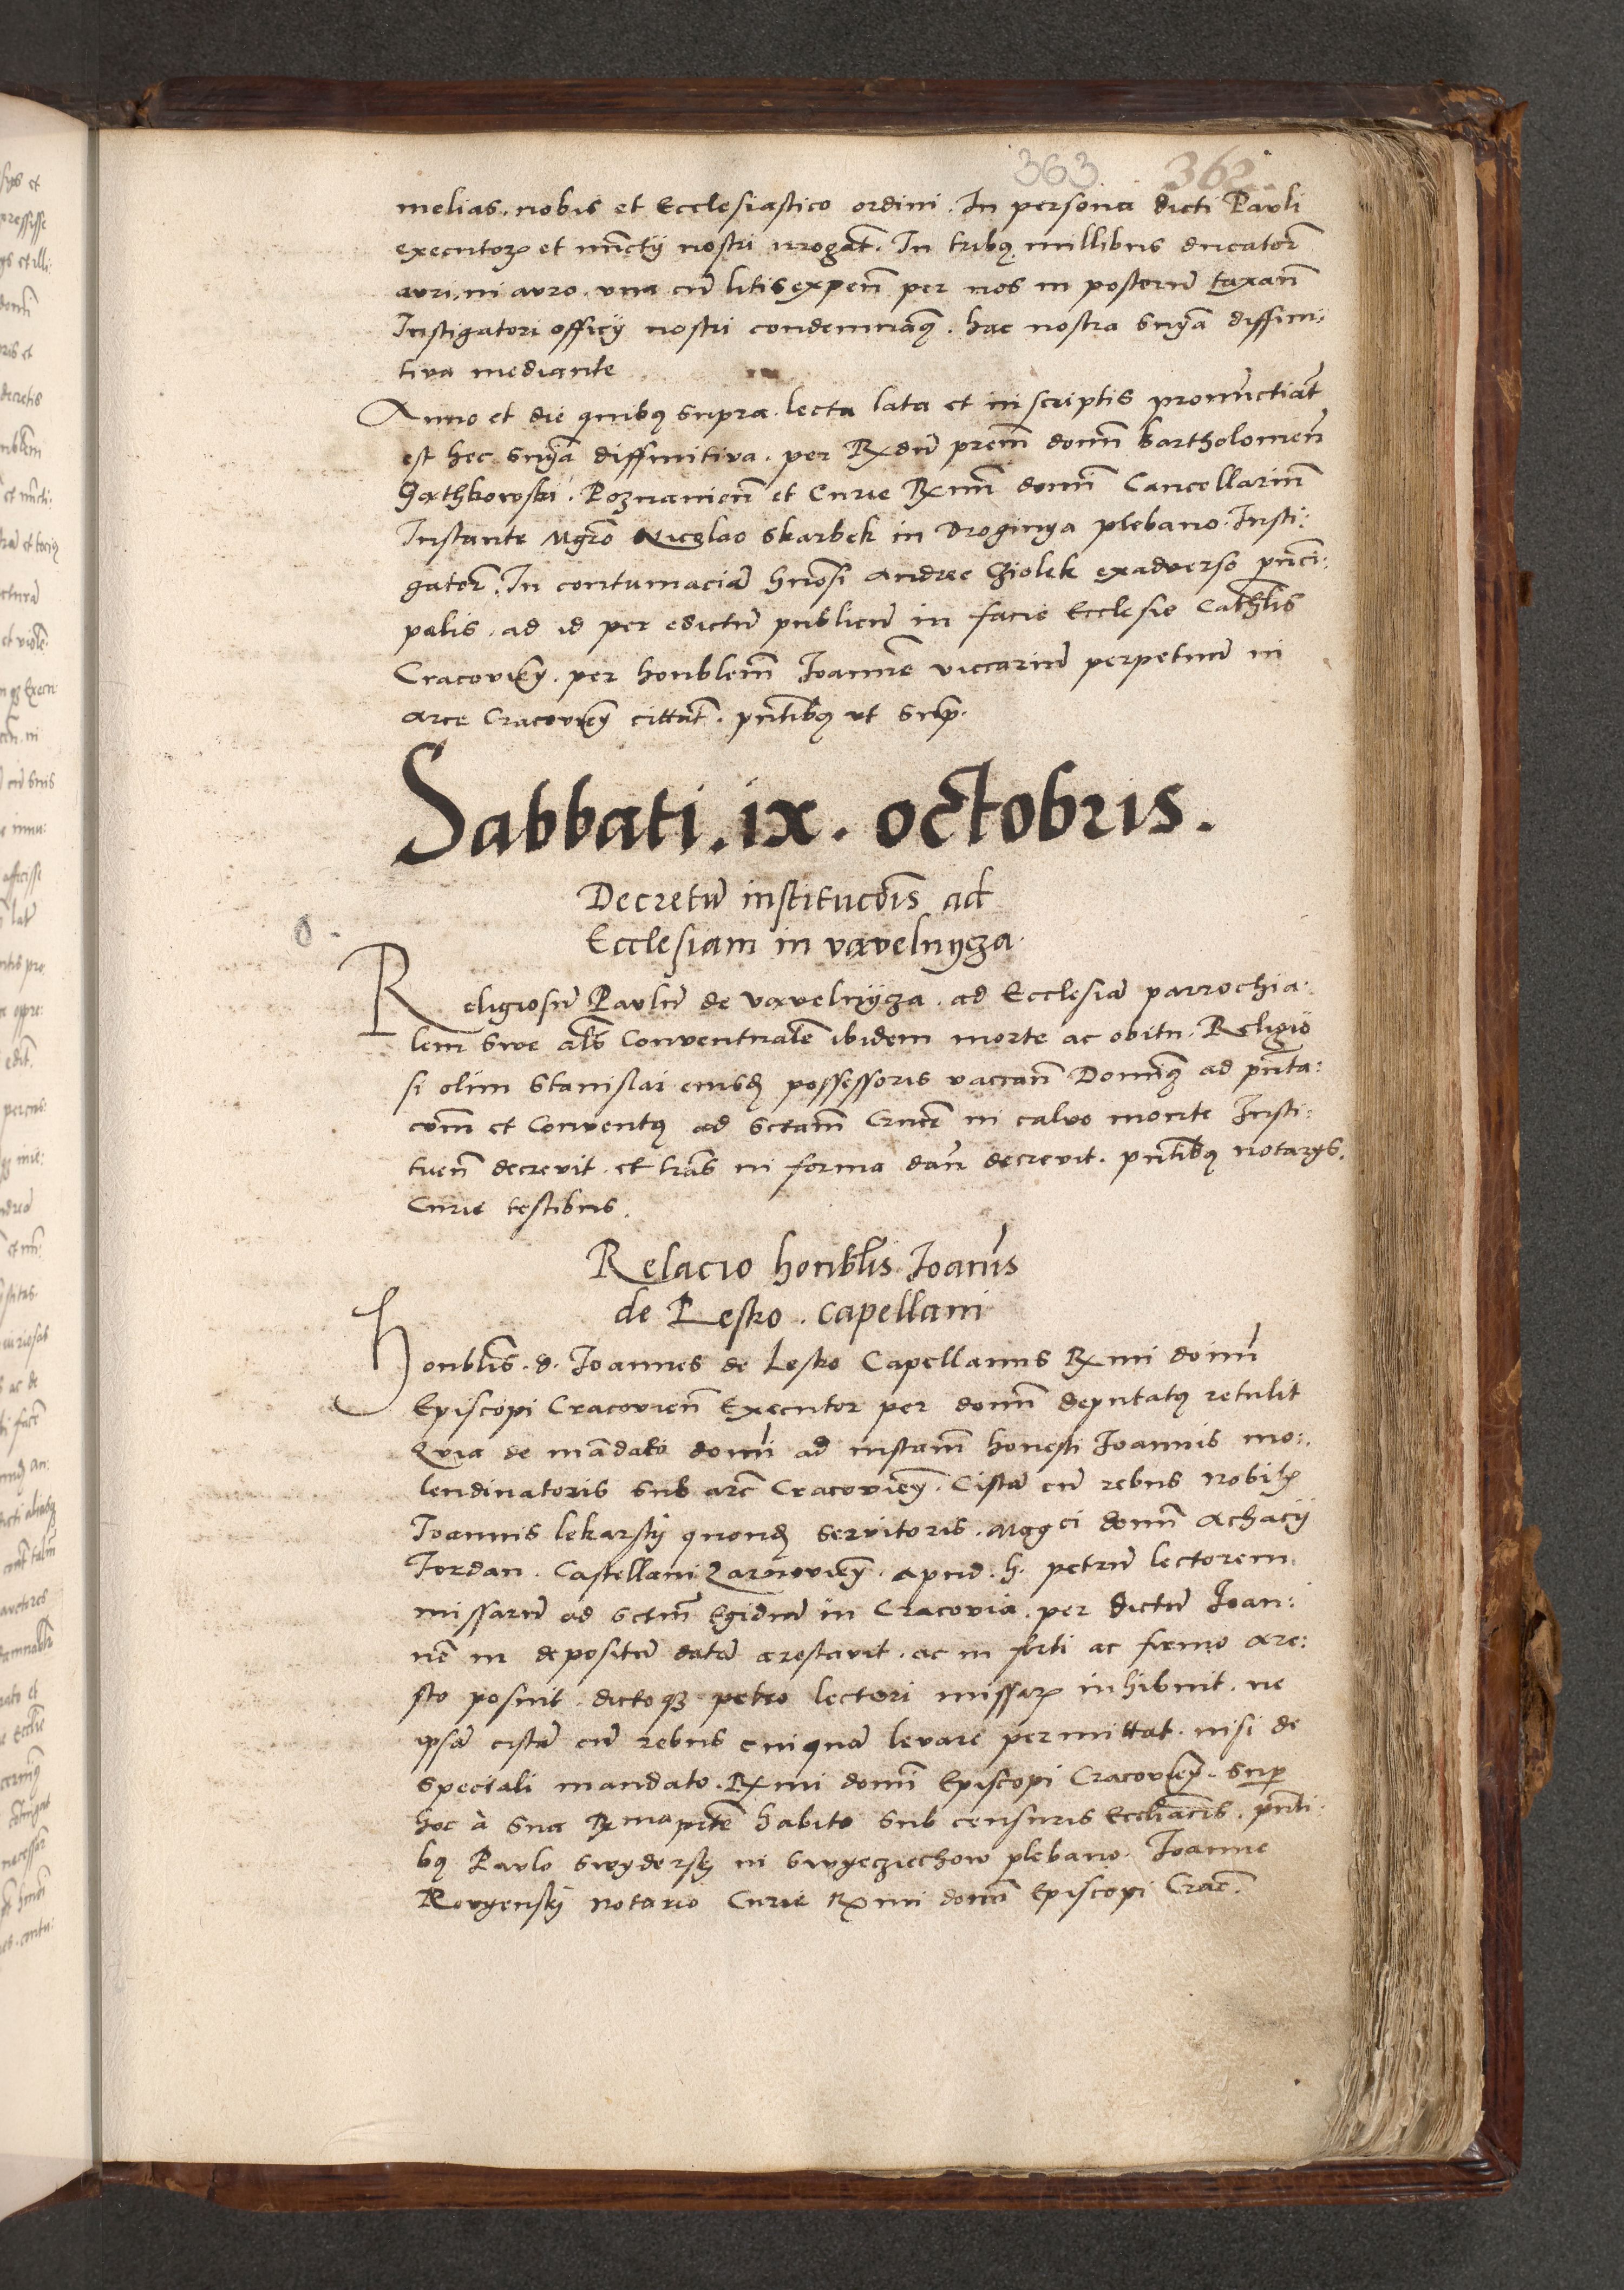 363 362.
melias. nobis et Ecclesiastico ordini. In persona dicti Pauli
executoꝝ et nuncty nostri irrogat̃. In tribꝰ millibus ducatoꝝ
auri. in auro. vna cũ litis expeñ per nos in posterũ taxañ
Instigatori officÿ nostri condemnaꝰ. hac nostra snĩa diffini:
tiva mediante
Anno et die quibꝰ supra. lecta lata et in scriptis pronũctiat̃
est hec snĩa diffinitiva. per Rx dũ prem̃ domñ bartholomeũ
Gathkowski. Poznanieñ et Curie Rx mi domñ Cancellariũ
Instante Mg̃ro Nicolao Skarbek in Droginya plebano. Insti:
gatoꝝ. In contumaciã hmõi Andree Cziolek exadverso prĩnci:
palis. ad id per edictũ publicũ in facie Ecclesie Cathlis
Cracovieñ. per honblem̃ Joannẽ viccariũ perpetuũ in
arce Cracovieñ cittat̃. pñtibꝰ vt sup̃.
Sabbati. ix. octobris.
Decretũ institucõis ad
Ecclesiam in vavelnycza
Religiosũ Paulũ de Vavelnÿcza. ad Ecclesiã parrochia:
lem Swe als̃ Conventualẽ ibidem morte ac obitu. Religio
si olim Stanislai eiusd̃ possessoris vaccañ Domiñ ad pñta:
com̃ et Conventꝰ ad Sctam̃ Crucẽ in calvo monte Insti:
tueñ decrevit. et lrãs in forma dañ decrevit. pñtibꝰ notarys.
Curie testibus.
Relacio honblis. Joañis
de Lesko. Capellani
honblis̃. d. Joannes de Lesko Capellanus Rx mi domi
Episcopi Cracovieñ Executor per domñ deputatꝰ retulit
Quia de mãdato domi ad instam̃ honesti Joannis mo:
lendinatoris sub arc̃ Cracovieñ. Cistã cũ rebus Nobilꝭ
Joannis lekarsky quond̃ servitoris. Mgg ci domñ Achacÿ
Jordan. Castellani Zarnovieñ. apud. h. petrũ lectorem
missarũ ad Sctm̃ Egidiũ in Cracovia. per dictũ Joan:
nẽ in depositũ datã arestavit. ac in forti ac firmo are:
sto posuit. dictoqꝫ petro lectori missaꝝ inhibuit. ne
ipsã cistã cũ rebus cuiquã levare permittat. nisi de
speciali mandato. Rx mi domi Episcopi Cracovieñ. Sup̃
hoc à sua Rx ma ptẽ habito sub censuris Ecclĩacis. pñti:
bꝰ Paulo Swydersky in Swyeczechow plebano. Joanne
Rovyensky notario Curie Rx mi domñ Episcopi Crac̃.